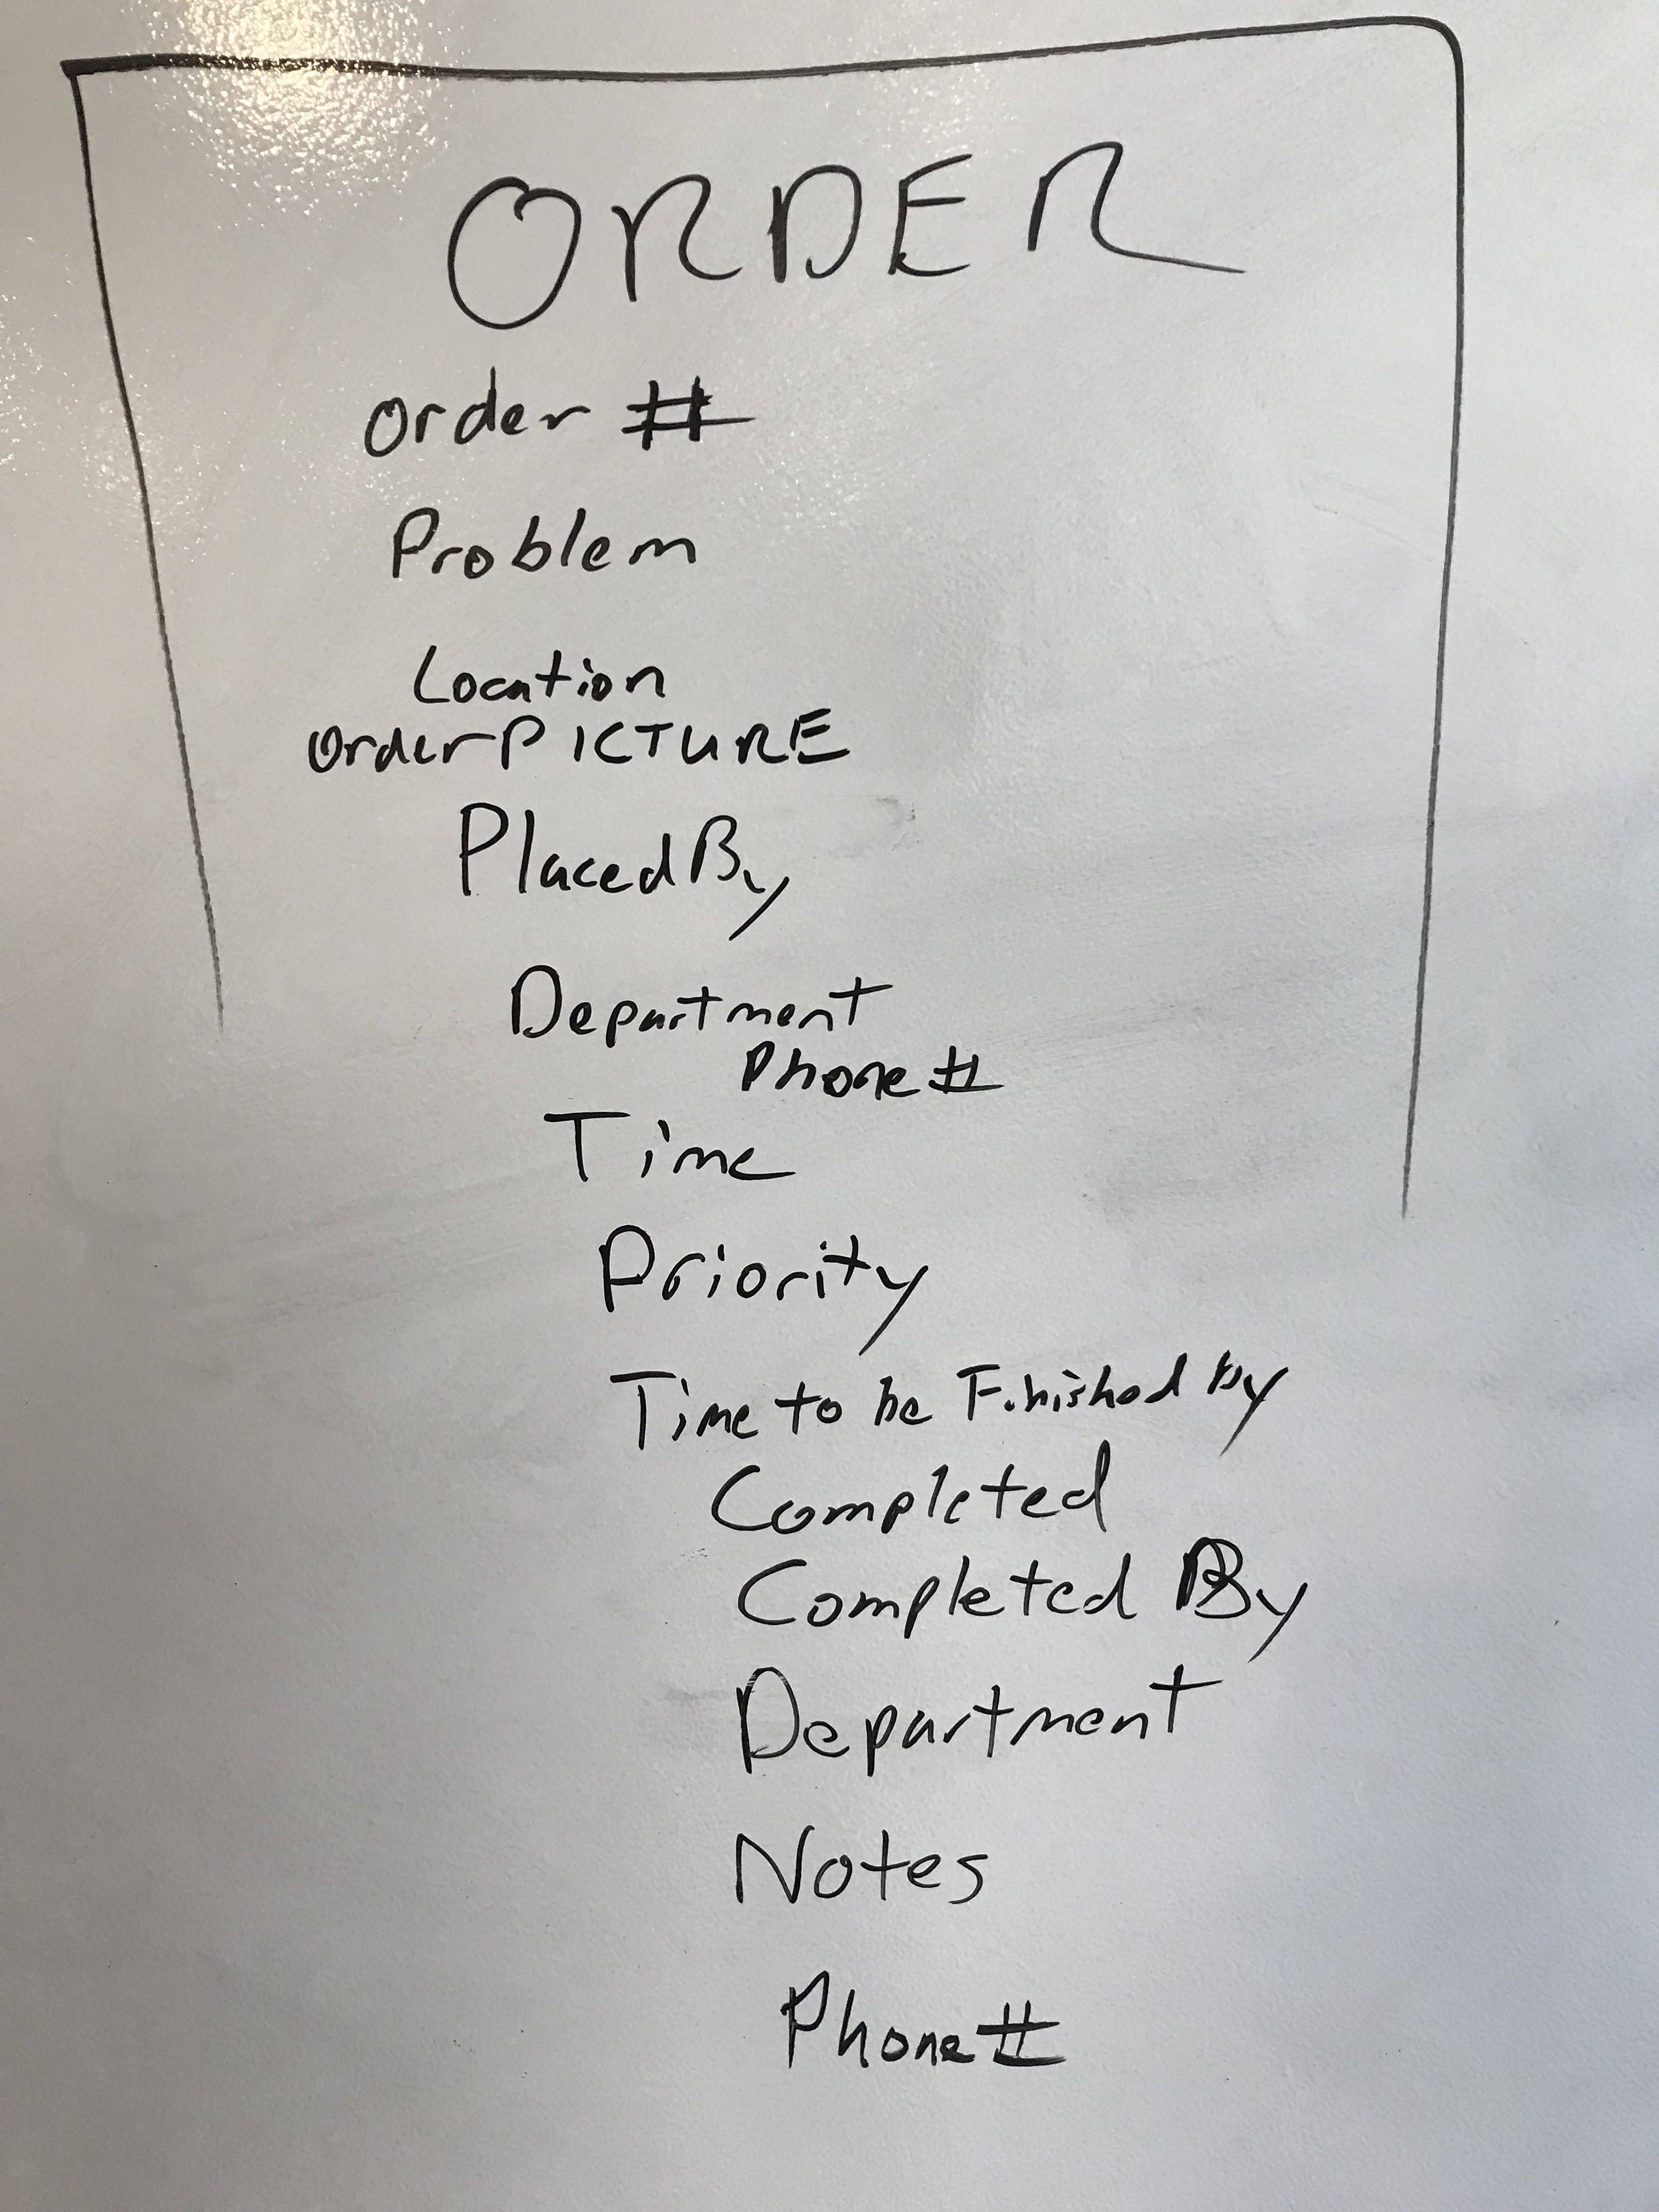 ORDER
Order #
Problem
Location
Order PICTURE
Placed By
Department
Phone #
Time
Priority
Time to be Finished by
Completed
Completed By
Department
Notes
Phone #